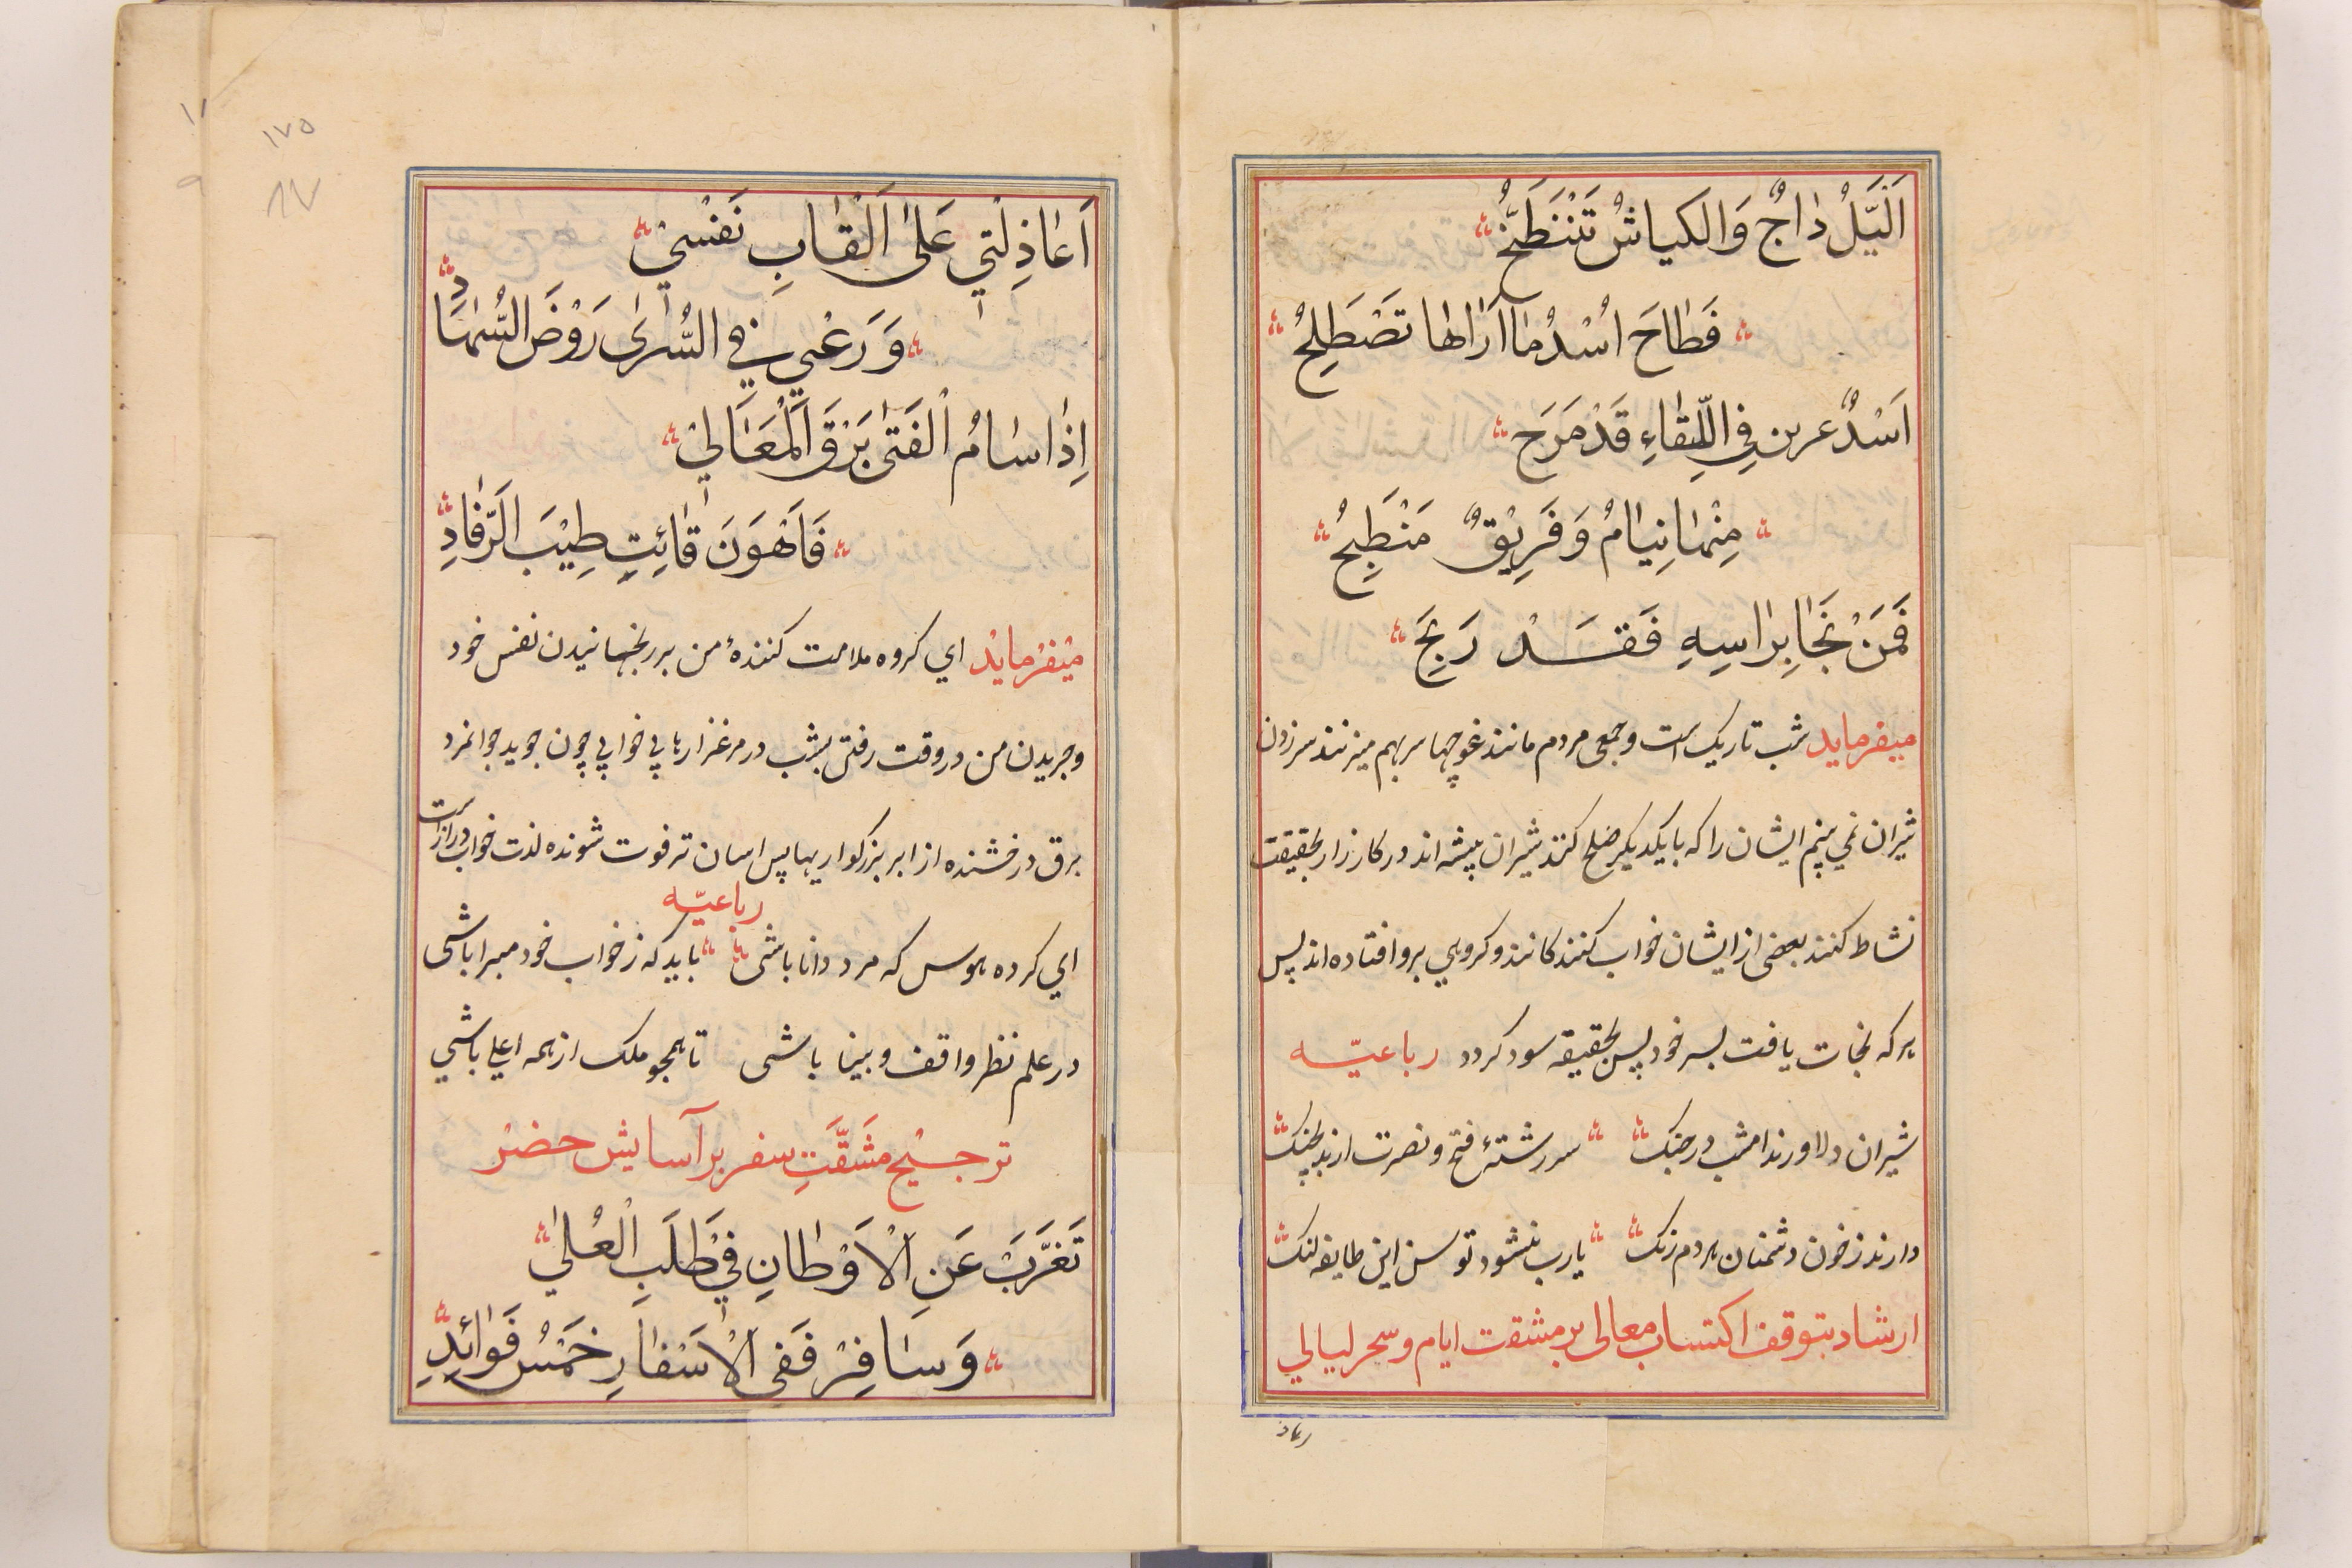 اَلَّیَلُ دٰاجٌ وَالکیاشُ تَنْتَطِحُ
فَطاحَ اُسْدٌ مٰا اَرٰاهٰا تَصْطَلِحُ
اَسْدُ عرین فِی اللِّقٰاءِ قَدْ مَرَح
مِنْهٰا نِیٰامُ وَ فَرِیْقٌ مَنْطَبِحُ
فَمَنْ نَجٰا بِرٰاسِهِ فَقَدْ رَبِحَ
میفرماید شب تاریک است و جمعی مردم مانند غوچها سر بهم میزنند سرزدن
شیران نمی بینم ایشان را که با یکدیکر صلح کنند شیران بیشه اند در کارزار بحقیقت
نشاط کنند بعضی از ایشان خواب کنندکانند و کروهی برو افتاده اند پس
هر که نجات یافت بسر خود پس بحقیقه سود کردد رباعیّه
شیران دلاورند امشب در جنک سررشتهٔ فتح و نصرت ارند بچنک
دارند ز خون دشمنان هر دم رنک یارب نشود توسن این طایفه لنک
ارشاد بتوقف اکتساب معالی بر مشقت ایام و سحر لیالی
اعاذ
۱۷۵
۸۷
اَعٰاذِلَتی عَلٰی اَتْقٰابِ نَفْسی
وَ رَعْیی فِی السُّرٰی رَوْضَ السُّهٰادِ
اِذٰا سٰامُ الْفَتٰی بَرْقَ الْمَعٰالی
فَاَهْوَنَ فٰائِتٍ طِیْبَ الرَّقٰادِ
میْفرمایْد ای کروه ملامت کنندهٔ من بر رنجهانیدن نفس خود
و چریدن من در وقت رفتن بشب در مرغزارها پی خوابی چون جوید جوانمرد
برق درخشنده از ابر بزرکواریها پس اسان تر فوت شونده لذت خواب درازاست
رباعیّه
ای کرده هوس که مرد دانا باشی باید که ز خواب خود مبرا باشی
در علم نظر واقف و بینا باشی تا همچو ملک از همه اعلی باشی
ترجیْح مَشَقَّتِ سفر بر آسایش حضرْ
تَغَرَّبَ عَنِ الْاَوْطانِ فی طَلَبِ الْعُلیٰ
وَ سٰافِرْ فَفی الْاَسْفٰارِ خَمْسُ فَوٰائِدِ